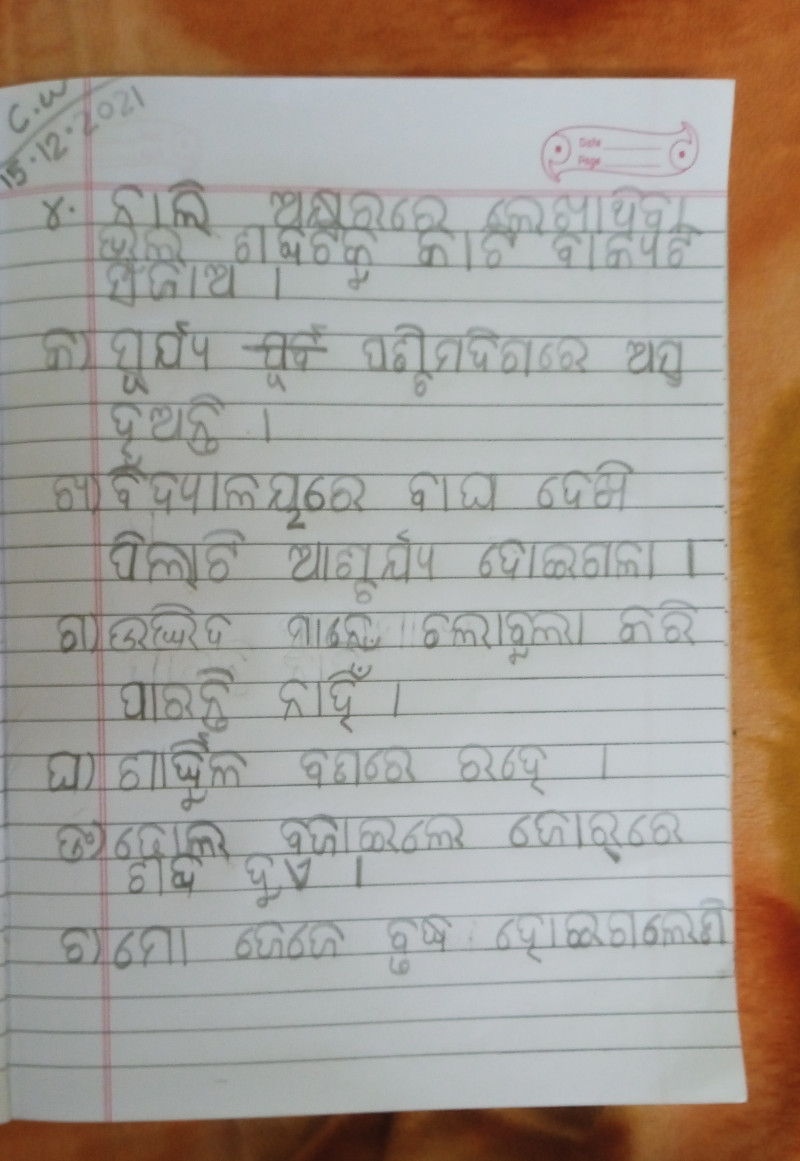 C.W
15.12.2021
Date
Page
୪. ନାଲି ଅକ୍ଷରରେ ଲେଖାଯିବା
ଭୁଲ ଶବ୍ଦଟିକୁ କାଟି ବାକ୍ୟଟି
ସଜାଅ ।
କ) ସୂର୍ଯ୍ୟ ପୂର୍ବ ପଶ୍ଚିମଦିଗରେ ଅସ୍ତ
ହୁଅନ୍ତି ।
ଖ) ବିଦ୍ୟାଳୟରେ ବାଘ ଦେଖି
ପିଲାଟି ଆଶ୍ଚର୍ଯ୍ୟ ହୋଇଗଲା ।
ଗ) ଉଦ୍ଭିଦ ମାନେ ଚଲାବୁଲା କରି
ପାରନ୍ତି ନାହିଁ ।
ଘ) ଶାର୍ଦ୍ଦୁଳ ବଣରେ ରହେ ।
ଙ) ଢୋଲ ବଜାଇଲେ ଜୋର୍‌ରେ
ଶବ୍ଦ ହୁଏ ।
ଚ) ମୋ ଜେଜେ ବୃଦ୍ଧ ହୋଇଗଲେଣି